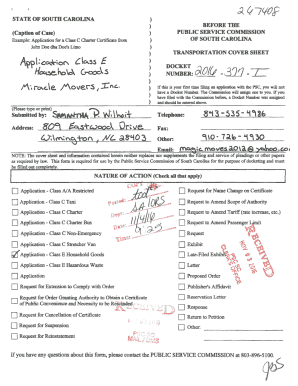 267408
STATE OF SOUTH CAROLINA
(Caption of Case)
Example: Application for a Class C Charter Certificate from
John Doe dba Doe's Limo
Application Class E
Household Goods
Miracle Movers, Inc.
BEFORE THE
PUBLIC SERVICE COMMISSION
OF SOUTH CAROLINA
TRANSPORTATION COVER SHEET
DOCKET
NUMBER: 2016-377-T
If this is your first time filing an application with the PSC, you will not
have a Docket Number. The Commission will assign one to you. If you
have filed with the Commission before, a Docket Number was assigned
and should be entered above.
(Please type or print)
Submitted by: Samantha P Wilhoit
Address: 809 Eastwood Drive
Wilmington, NC 28403
Telephone: 843-535-4986
Fax:
Other: 910-726-4930
Email: magicmoves2012@yahoo.com
NOTE: The cover sheet and information contained herein neither replaces nor supplements the filing and service of pleadings or other papers
as required by law. This form is required for use by the Public Service Commission of South Carolina for the purpose of docketing and must
be filled out completely.
NATURE OF ACTION (Check all that apply)
Application - Class A/A Restricted
Application - Class C Taxi
Application - Class C Charter
Application - Class C Charter Bus
Application - Class C Non-Emergency
Application - Class C Stretcher Van
Application - Class E Household Goods
Application - Class E Hazardous Waste
Application
Request for Extension to Comply with Order
Request for Order Granting Authority to Obtain a Certificate
of Public Convenience and Necessity to be Rescinded
Request for Cancellation of Certificate
Request for Suspension
Request for Reinstatement
Request for Name Change on Certificate
Request to Amend Scope of Authority
Request to Amend Tariff (rate increase, etc.)
Request to Amend Passenger Limit
Request
Exhibit
Late-Filed Exhibit
Letter
Proposed Order
Publisher's Affidavit
Reservation Letter
Response
Return to Petition
Other:
Posted:
Dept:
Date: 11/4/16
Time: 9:25
RECEIVED
NOV 03 2016
PSC SC
MAIL / DMS
RECEIVED
PSC SC
MAIL / DMS
If you have any questions about this form, please contact the PUBLIC SERVICE COMMISSION at 803-896-5100.